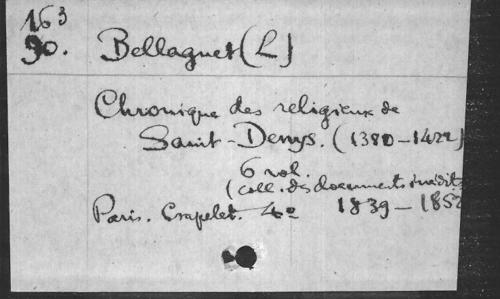 16³
90. Bellaguet (L)
Chronique des religieux de
Saint-Denys. (1380-1422)
6 vol.
(coll. des documents inédits
Paris. Crapelet. 4º 1839-1852